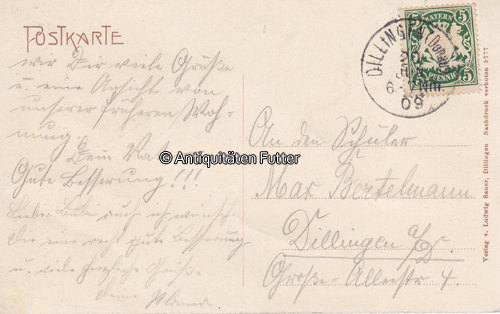 POSTKARTE
wir Dir viele Grüße
u. eine Ansicht von
unserer früheren Woh-
nung.
Dein Vater
Gute Besserung!!!
Lieber Bub auch ich wünsch
Dir eine recht gute Besserung
u. viele herzliche Grüße
Deine Mama.
© Antiquitäten Futter
DILLINGEN (Donau)
09
BAYERN
5 5
PFENNIG
An den Schüler
Max Bertelmann
Dillingen a/D.
Große-Alleestr 4.
Verlag v. Ludwig Sauer, Dillingen Nachdruck verboten 5777